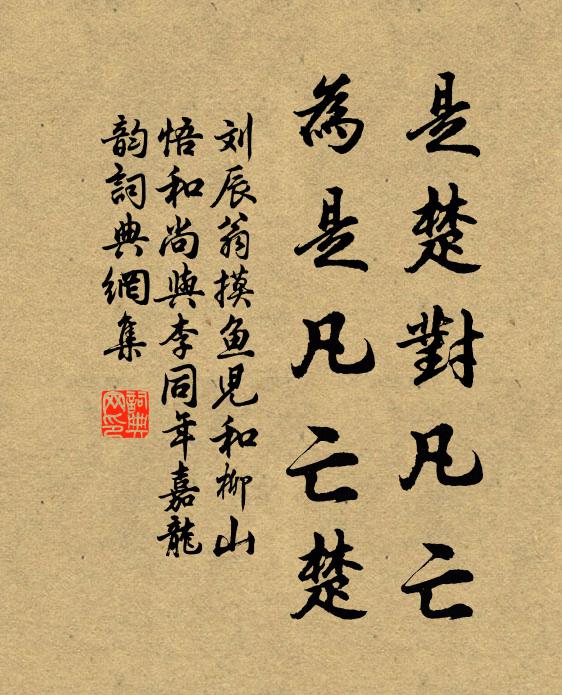 是楚對凡亡
為是凡亡楚
刘辰翁摸鱼児和柳山
悟和尚與李同年嘉龍
韵詞典網集
詞典网印